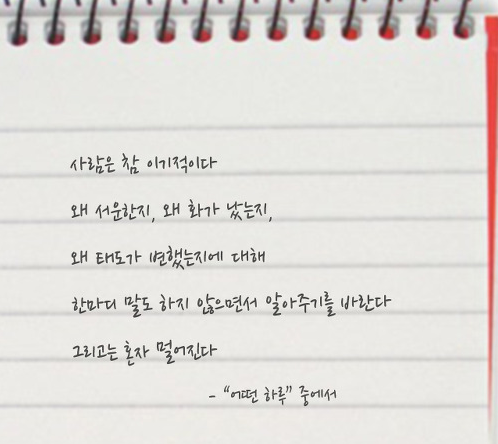 사람은 참 이기적이다
왜 서운한지, 왜 화가 났는지,
왜 태도가 변했는지에 대해
한마디 말도 하지 않으면서 알아주기를 바란다
그리고는 혼자 멀어진다
- "어떤 하루" 중에서